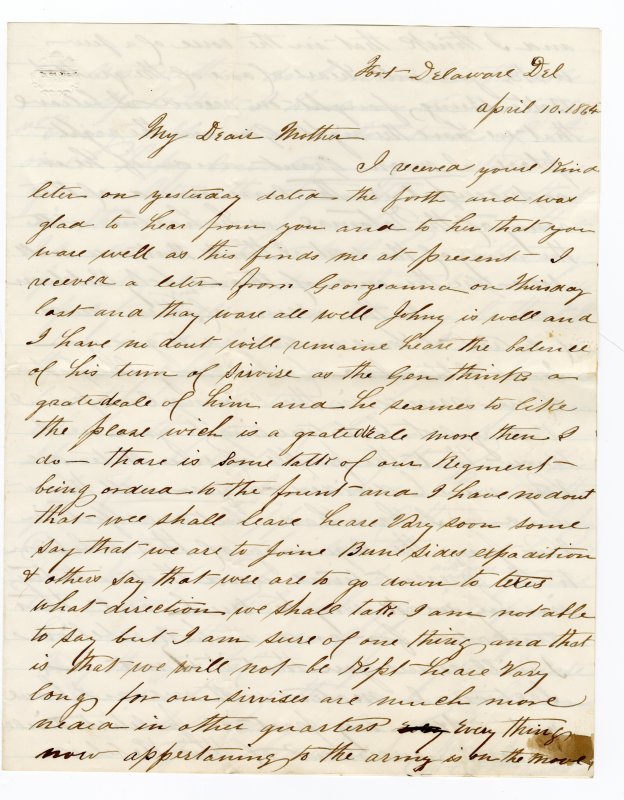 Fort Delaware Del
april 10. 1864
My Dear Mother
I receved youre Kind
leter on yesterday dated the forth and was
glad to hear from you and to her that you
ware well as this finds me at present I
receved a leter from Georgeanna on Thursday
last and thay ware all well Johny is well and
I have no dout will remaine heare the balence
of his turm of sirvise as the Gen thinks a
gratedeale of him and he seames to like
the plase wich is a gratedeale more then I
do — thare is some talk of our Regment
being ordera to the frunt and I have no dout
that wee shall leave heare Vary soon some
say that we are to joine Burnsides expadition
& others say that wee are to go down to texes
what direction we shall take I am not able
to say but I am sure of one thing and that
is that we will not be Kept heare Vary
long for our sirvises are much more
neaca in other quarters every Every thing
now appertaning to the army is on the move